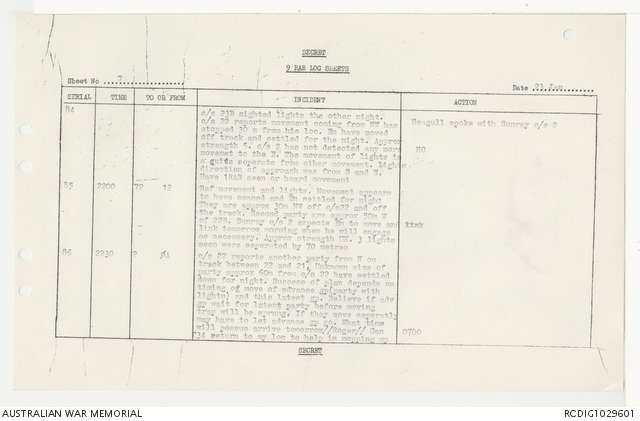 SECRET
9 RAR LOG SHEETS
Sheet No ...7...
Date 23 Jan
SERIAL TIME TO OR FROM INCIDENT ACTION
84
c/s 23B sighted lights the other night.
c/s 22 reports movement coming from NW has
stopped 30 m from his loc. En have moved
off track and settled for the night. Approx
strength 5. c/s 2 has not detected any more
movement to the N. The movement of lights is
a quite separate from other movement. Lights
direction of approach was from N and W.
Have heard movement
Seagull spoke with Sunray c/s 2
NO
85 2200 72 12
Ref movement and lights. Movement appears
to have ceased and En settled for night
They are approx 30m NW off c/s22 and off
the track. Second party are approx 50m W
of 22B. Sunray c/s 2 expects En to move and
link tomorrow morning when he will engage
as necessary. Approx strength UK. 3 lights
seen were separated by 70 metres
86 2230 2
c/s 22 reports another party from N on
track between 22 and 21. Unknown size of
party approx 60m from c/s 22 have settled
down for night. Success of plan depends on
timing of move of advance gp(party with
lights) and this latest gp. Believe if adv
gp wait for latest party before moving
trap will be sprung. If they move separately
may have to let advance gp go. What time
will possum arrive tomorrow//Roger// Can
34 return to my loc to help in mopping up
0700
SECRET
AUSTRALIAN WAR MEMORIAL
RCDIG1029601